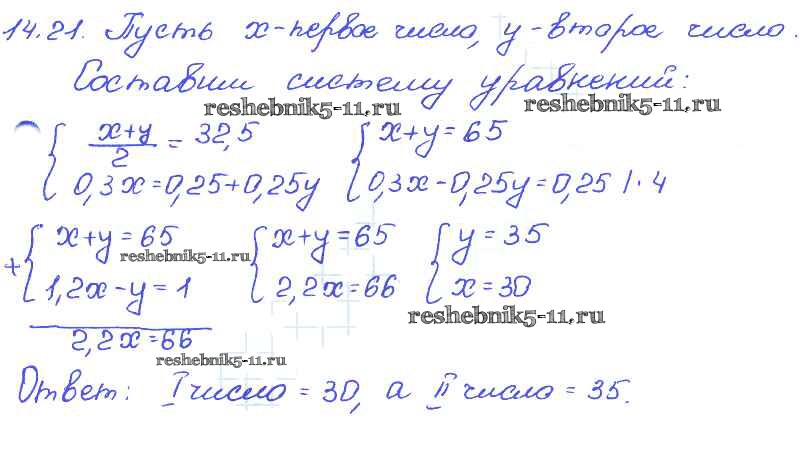 14.21. Пусть x-первое число, y-второе число.
Составим систему уравнений:
reshebnik5-11.ru reshebnik5-11.ru
{ (x+y)/2 = 32,5 { x+y=65
0,3x=0,25+0,25y 0,3x-0,25y=0,25 /·4
+ { x+y=65 { x+y=65 { y=35
reshebnik5-11.ru
1,2x-y=1 2,2x=66 x=30
reshebnik5-11.ru
2,2x=66
reshebnik5-11.ru
Ответ: I число = 30, а II число = 35.